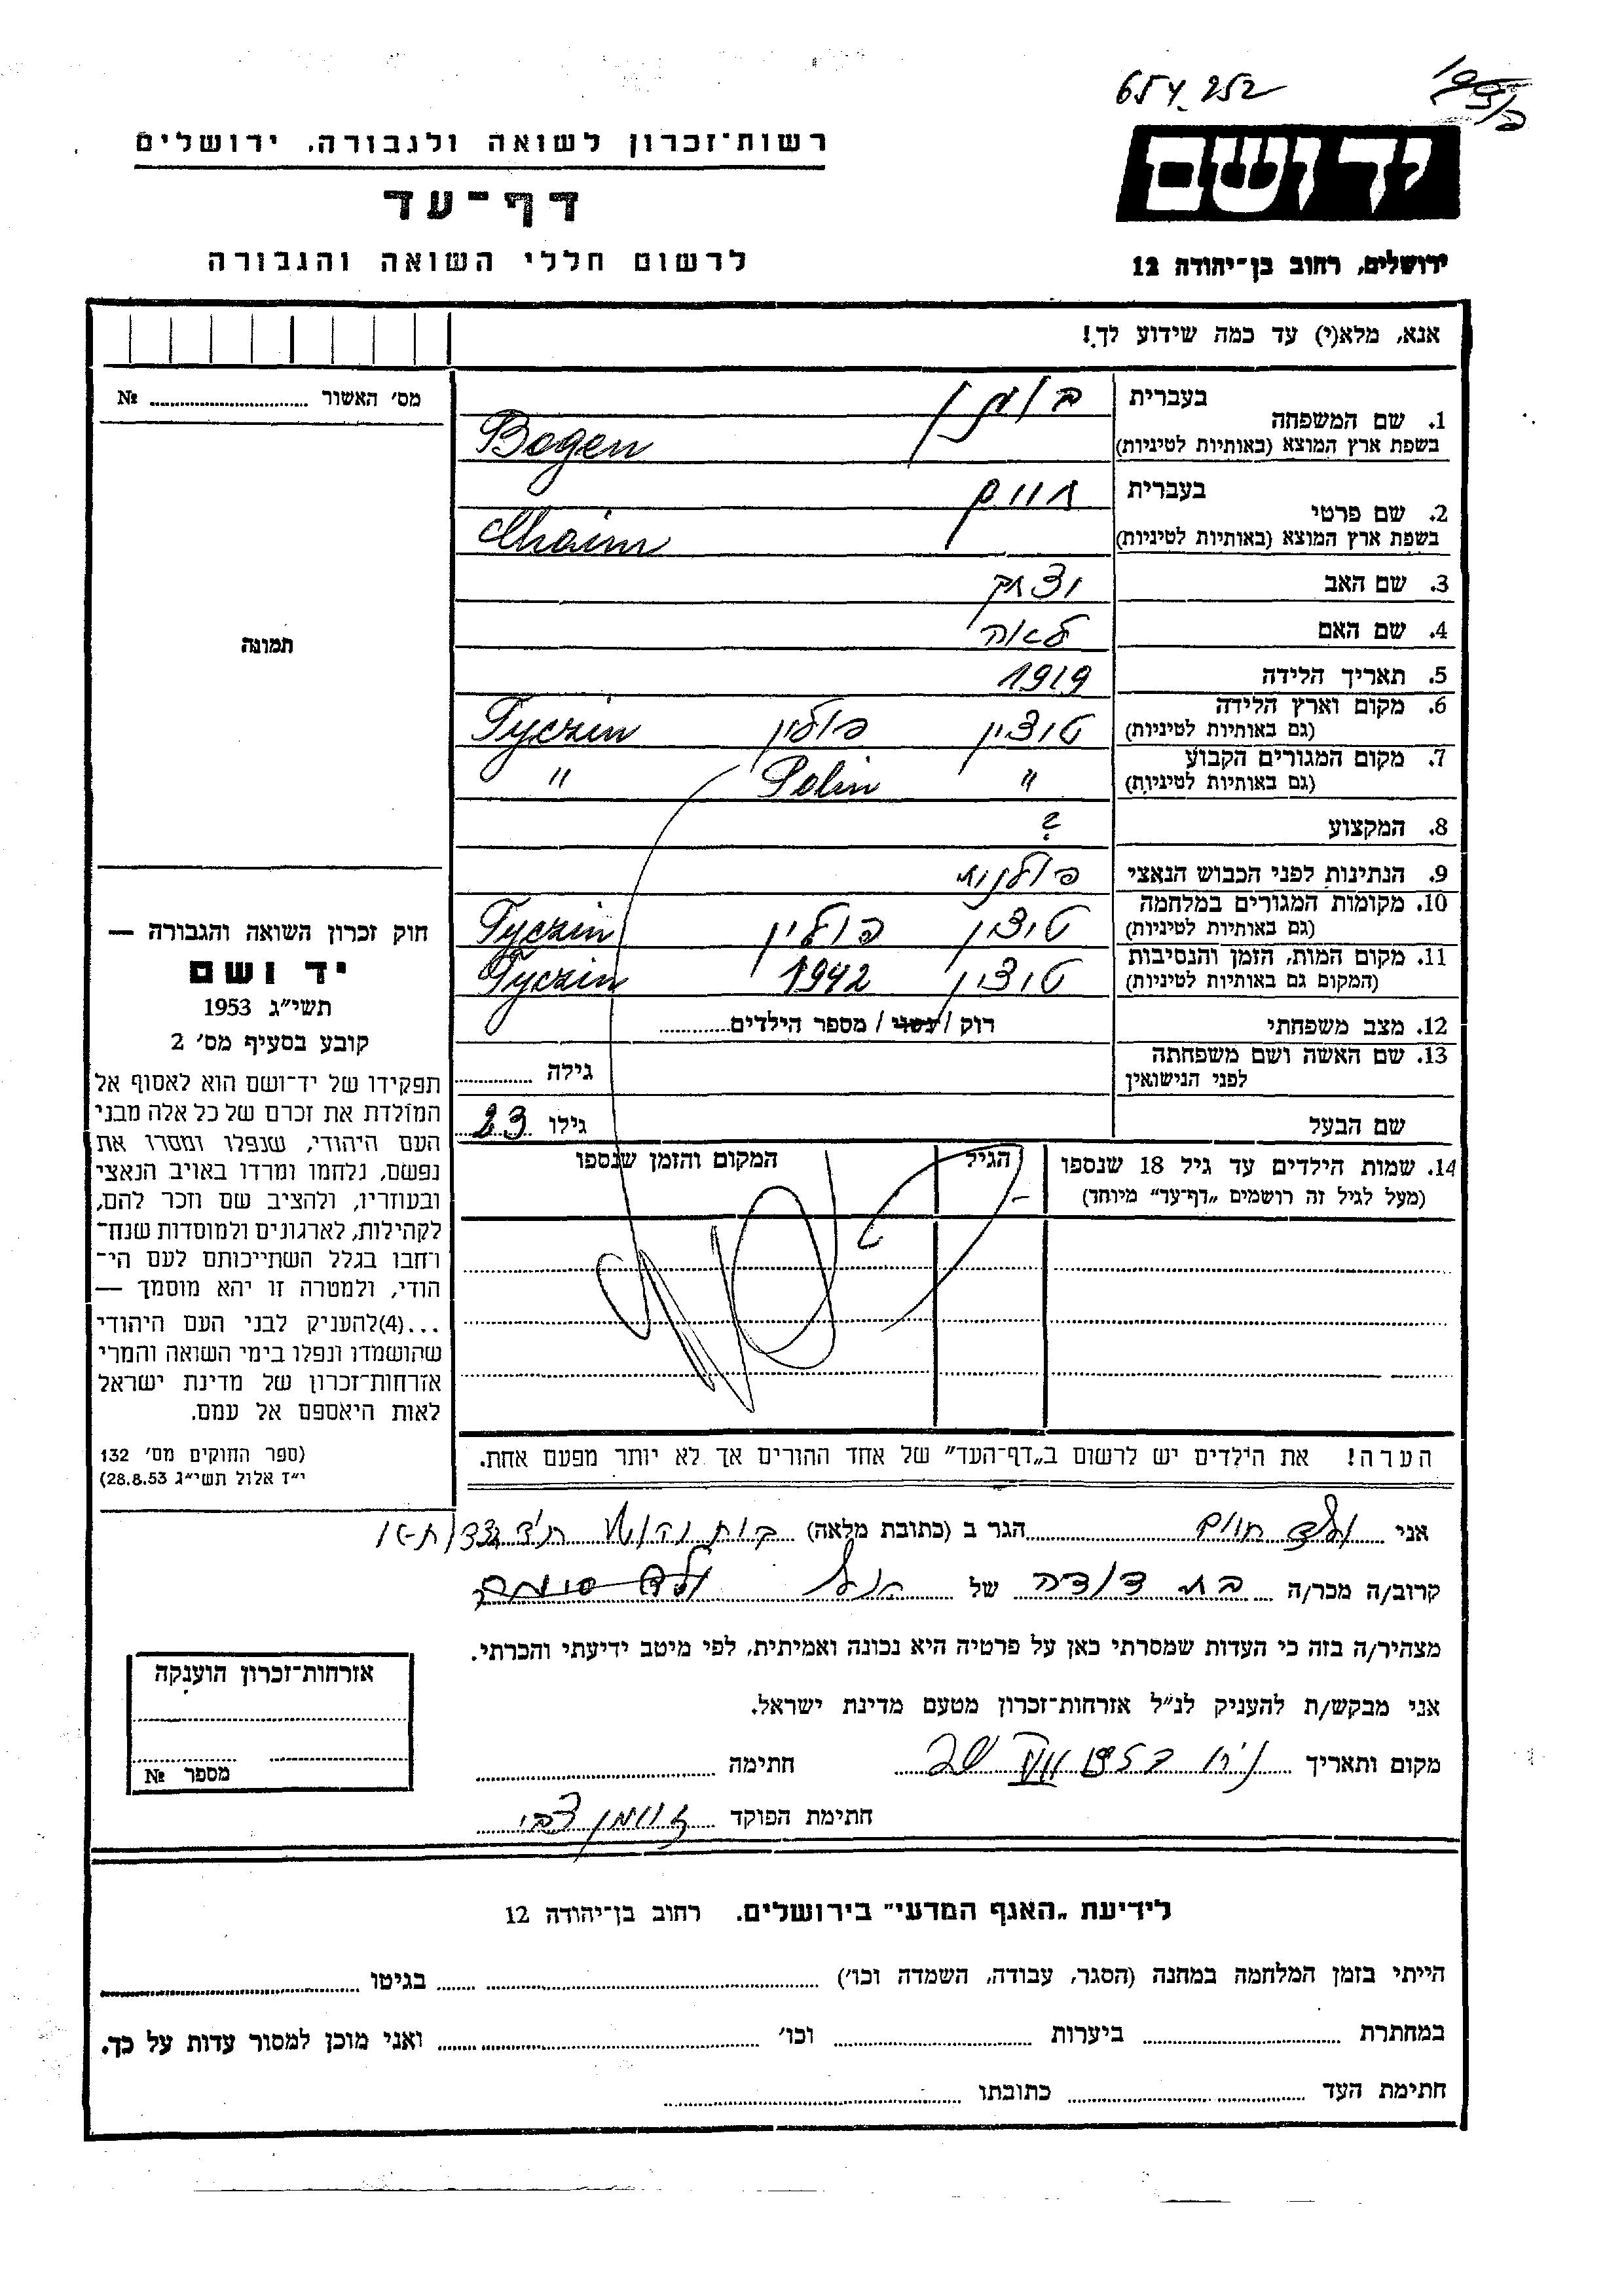 654.252
רשות־זכרון לשואה ולגבורה, ירושלים
דף־עד
לרשום חללי השואה והגבורה
יד ושם
ירושלים, רחוב בן־יהודה 12
אנא, מלא(י) עד כמה שידוע לך!
מס' האשור № 
תמונה
1. שם המשפחה
בעברית בוגן
בשפת ארץ המוצא (באותיות לטיניות) Bogen
2. שם פרטי
בעברית חיים
בשפת ארץ המוצא (באותיות לטיניות) Chaim
3. שם האב יצחק
4. שם האם לאה
5. תאריך הלידה 1919
6. מקום וארץ הלידה (גם באותיות לטיניות) טיצין פולין Tyczin
7. מקום המגורים הקבוע (גם באותיות לטיניות) " Polin "
8. המקצוע ?
9. הנתינות לפני הכבוש הנאצי פולנית
10. מקומות המגורים במלחמה (גם באותיות לטיניות) טיצין פולין Tyczin
11. מקום המות, הזמן והנסיבות (המקום גם באותיות לטיניות) טיצין 1942 Tyczin
12. מצב משפחתי רוק / נשוי / מספר הילדים
13. שם האשה ושם משפחתה לפני הנישואין גילה
שם הבעל גילו 23
14. שמות הילדים עד גיל 18 שנספו (מעל לגיל זה רושמים "דף־עד" מיוחד) הגיל המקום והזמן שנספו
חוק זכרון השואה והגבורה —
יד ושם
תשי"ג 1953
קובע בסעיף מס' 2
תפקידו של יד־ושם הוא לאסוף אל
המולדת את זכרם של כל אלה מבני
העם היהודי, שנפלו ומסרו את
נפשם, נלחמו ומרדו באויב הנאצי
ובעוזריו, ולהציב שם וזכר להם,
לקהילות, לארגונים ולמוסדות שנח־
רבו בגלל השתייכותם לעם הי־
הודי, ולמטרה זו יהא מוסמך —
...(4) להעניק לבני העם היהודי
שהושמדו ונפלו בימי השואה והמרי
אזרחות־זכרון של מדינת ישראל
לאות היאספם אל עמם.
(ספר החוקים מס' 132
י"ז אלול תשי"ג 28.8.53)
הערה! את הילדים יש לרשום ב"דף־העד" של אחד ההורים אך לא יותר מפעם אחת.
אני חיים הגר ב (כתובת מלאה)
קרוב/ה מכר/ה בת דודה של
מצהיר/ה בזה כי העדות שמסרתי כאן על פרטיה היא נכונה ואמיתית, לפי מיטב ידיעתי והכרתי.
אני מבקש/ת להעניק לנ"ל אזרחות־זכרון מטעם מדינת ישראל.
מקום ותאריך חתימה
חתימת הפוקד צבי
אזרחות־זכרון הוענקה
מספר №
לידיעת "האגף המדעי" בירושלים. רחוב בן־יהודה 12
הייתי בזמן המלחמה במחנה (הסגר, עבודה, השמדה וכו') בגיטו
במחתרת ביערות וכו' ואני מוכן למסור עדות על כך.
חתימת העד כתובתו